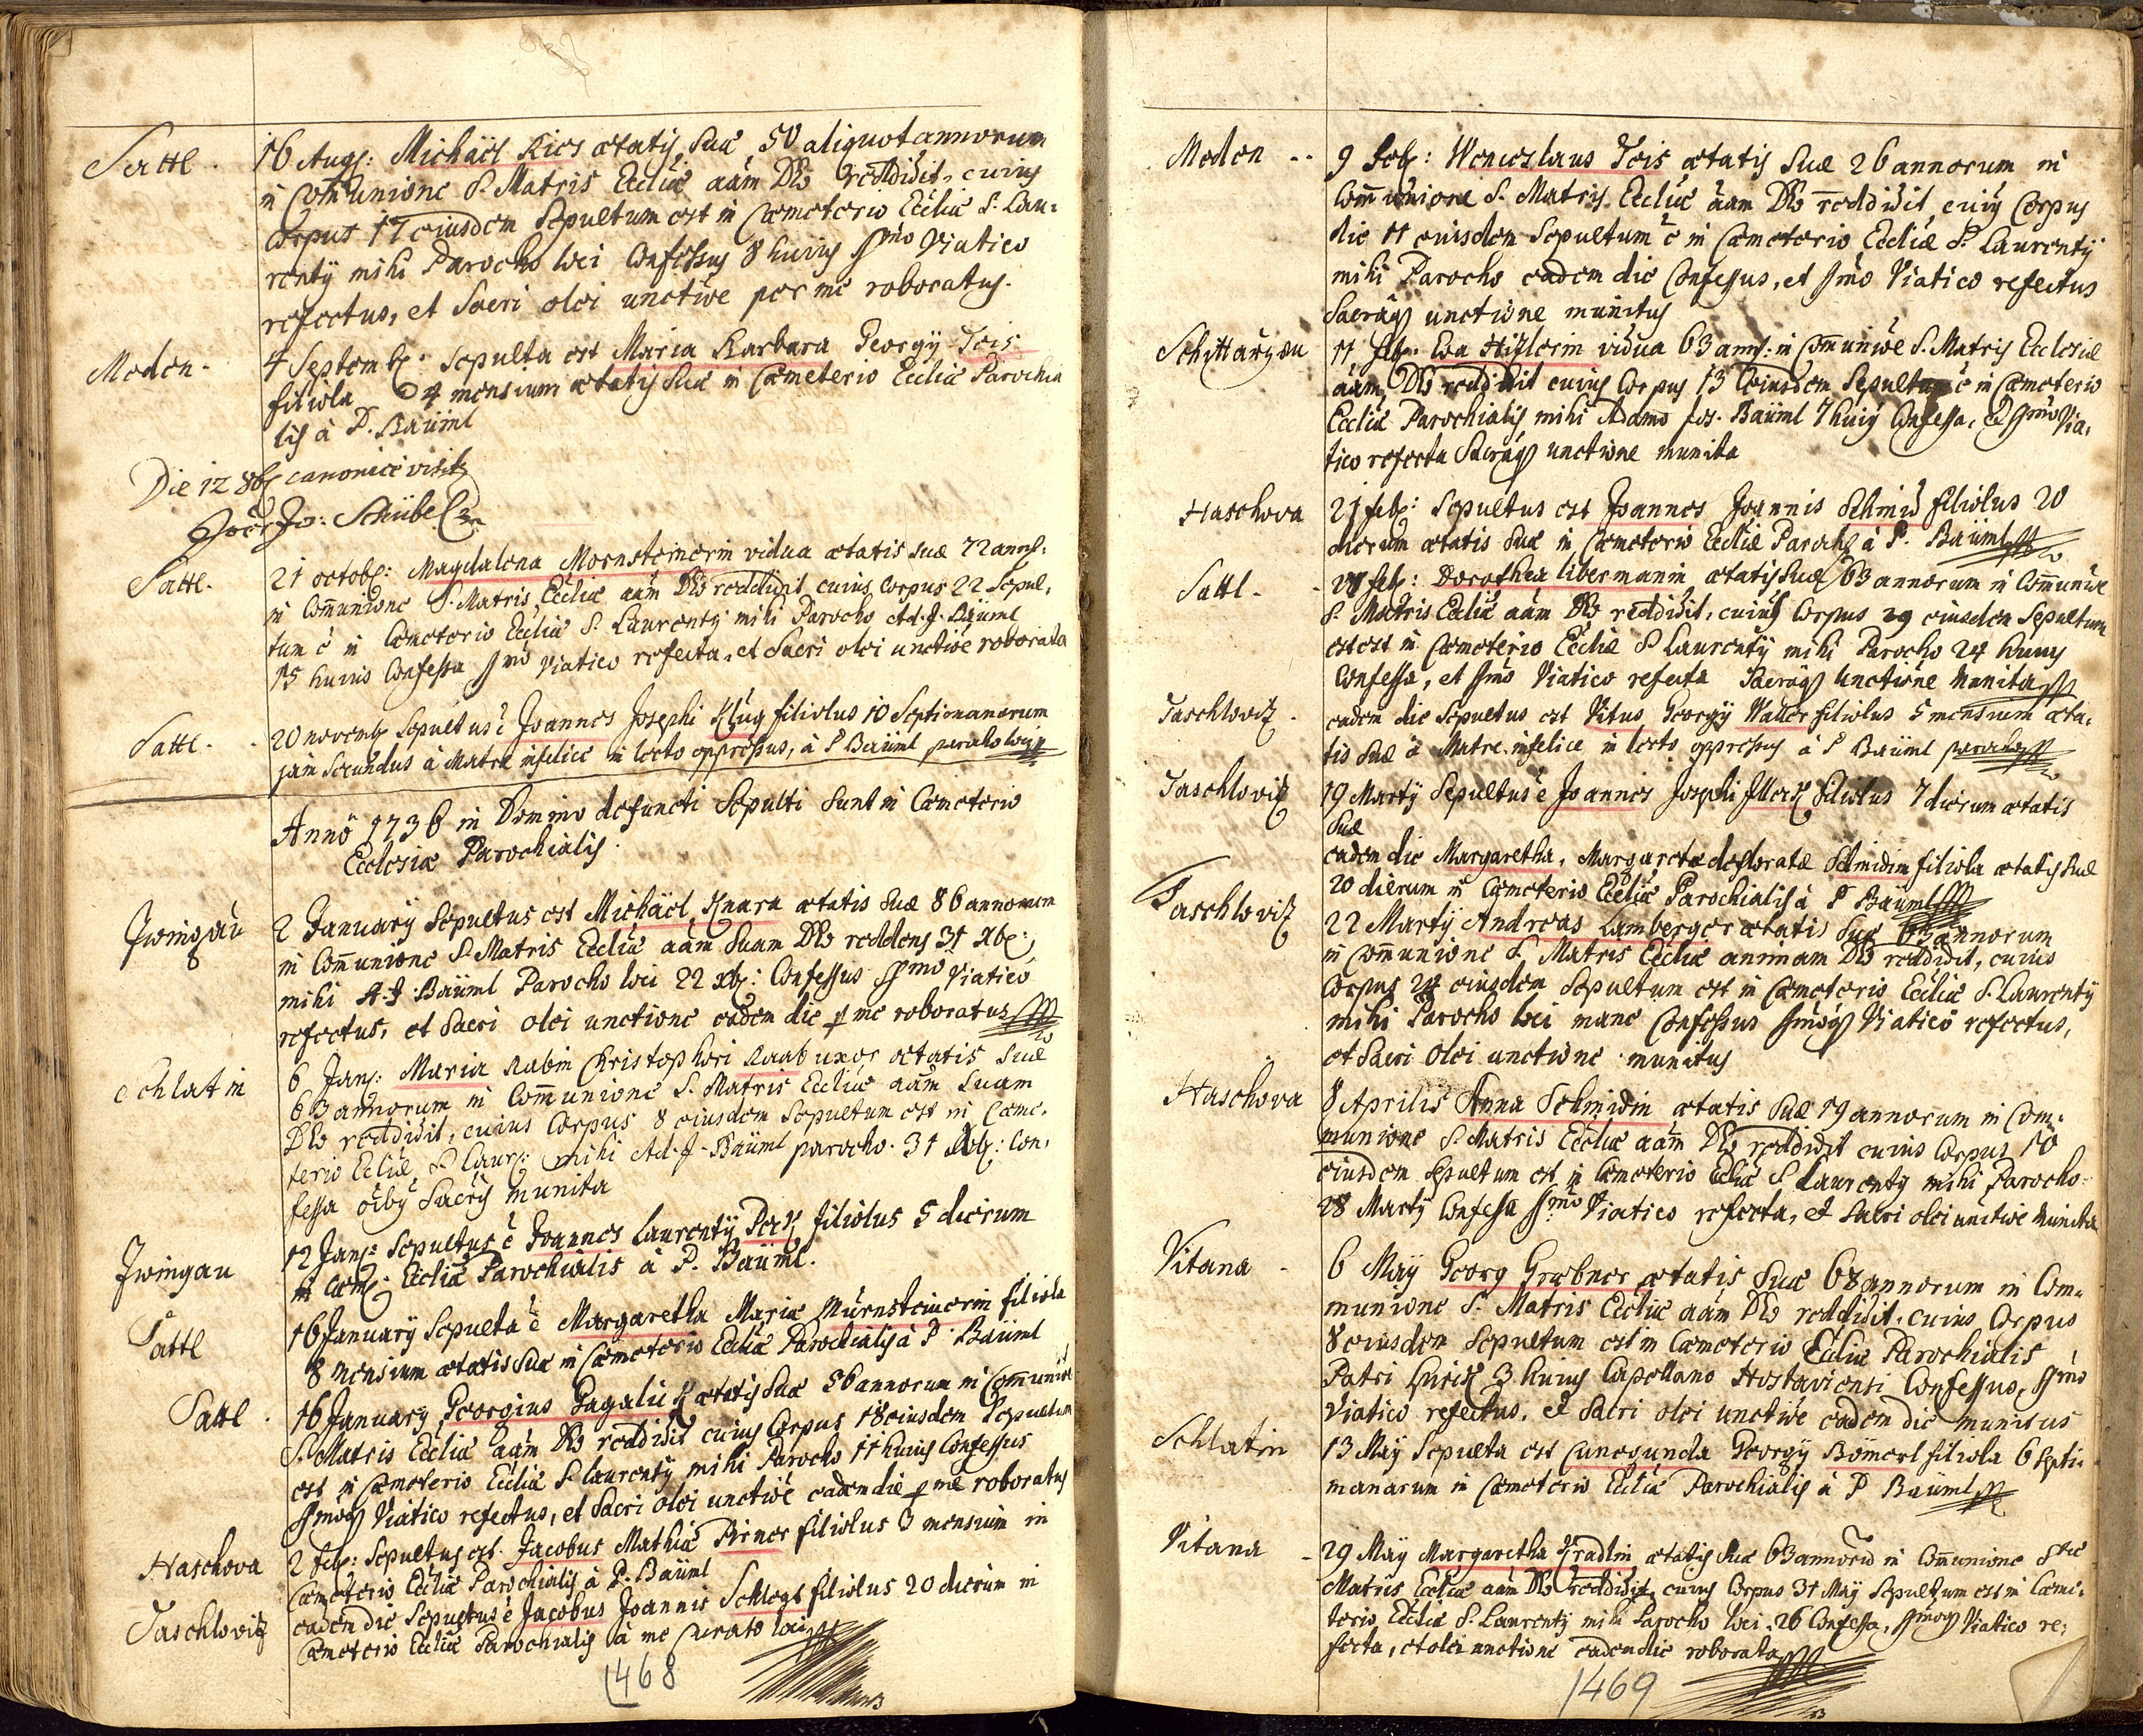 Sattl. 16 Augs: Michäel Kies ætatis suæ 50 aliquot annorum
in Com̄unione S. Matris Eccliæ aām Dēo reddidit, cuius
Corpus 17 eiusdem sepultum est in Cæmeterio Eccliæ S. Lau-
rentÿ mihi Parocho loci Confessus 8 huius ssmo Viatico
refectus, et Sacri olei unctiōe per me roboratus.
Meden. 4 Septemb: sepulta est Maria Barbara Georgÿ Jeis
filiola 4 mensium ætatis suæ in Cæmeterio Eccliæ Parochia
lis à P. Baüml
Die 12 8b canonicè visit
Jo: Schübel
Sattl. 21 octob: Magdalena Mernsteinerin vidua ætatis suæ 72 anns:
in Com̄unione S. Matris Eccliæ aām Dēo reddidit cuius Corpus 22 sepul-
tum ē in Cæmeterio Eccliæ S. Laurentÿ mihi Parocho Ad. J. Baüml
15 huius Confessa ssmo Viatico refecta, et Sacri olei unctiōe roborata
Sattl. 20 novemb sepultus ē Joannes Josephi Klug filiolus 10 Septimanarum
jam Secundus à Matre infelice in lecto oppressus, à P Baüml parocho loci
Anno 1736 in Domino defuncti Sepulti sunt in Cæmeterio
Ecclesiæ Parochialis.
Zwingau 2 Januarÿ sepultus est Michäel Knara ætatis suæ 86 annorum
in Com̄unione S. Matris Eccliæ aām suam Dēo reddens 31 Xb:
mihi A. J. Baüml Parocho loci 22 xb: Confessus ssmo Viatico
refectus, et Sacri olei unctione eadem die p me roboratus
Schlatin 6 Jans: Maria Rabin Christophori Raab uxor ætatis suæ
63 annorum in Com̄unione S. Matris Eccliæ aām suam
Dēo reddidit, cuius Corpus 8 eiusdem sepultum est in Cæme-
terio Eccliæ S. Laur: mihi Ad. J. Baüml parocho 31 Xb: Con-
fessa oībꝯ Sacris munita
Zwingau 12 Jans: sepultus ē Joannes Laurentÿ Perk filiolus 5 dierum
in Cæm: Eccliæ Parochialis à P. Baüml.
Sattl 16 Januarÿ sepulta ē Margaretha Maria Mürnsteinerin filiola
8 mensium ætatis suæ in Cæmeterio Eccliæ Parochialis à P. Baüml
Sattl. 16 Januarÿ Georgius Pagalick ætatis suæ 56 annorum in Com̄uniōe
S. Matris Eccliæ aām Dēo reddidit cuius Corpus 18 eiusdem sepultum
est in Cæmeterio Eccliæ S. Laurentÿ mihi Parocho 11 huius Confessus
ssmoq Viatico refectus, et Sacri olei unctiōe eadem die p me roboratus
Haschova 2 feb: sepultus est Jacobus Mathiæ Pirner filiolus 3 mensium in
Cæmeterio Eccliæ Parochialis à P. Baüml
Taschlovitz eadem die sepultus ē Jacobus Joannis Schlegl filiolus 20 dierum in
Cæmeterio Eccliæ Parochialis à me Curato loci
1468
Meden 9 feb: Wenceslaus Jeis ætatis suæ 26 annorum in
Com̄unione S. Matris Eccliæ aām Dēo reddidit, cuius Corpus
die 11 eiusdem Sepultum ē in Cæmeterio Eccliæ S. Laurentÿ
mihi Parocho eadem die Confessus, et ssmo Viatico refectus
Sacraq unctione munitus
Schittarzen 11 feb: Eva Hitzlerin vidua 63 anns: in Com̄uniōe S. Matris Ecclesiæ
aām Dēo reddidit cuius Corpus 13 eiusdem Sepultum ē in Cæmeterio
Eccliæ Parochialis, mihi Adamo Jos. Baüml 7 huius Confessa, et ssmo Via-
tico refecta Sacraq unctione munita
Haschova 21 feb: sepultus est Joannes Joannis Schmid filiolus 20
dierum ætatis suæ in Cæmeterio Eccliæ Parochs à P. Baüml
Sattl. 27 feb: Dorothea Libermanin ætatis suæ 63 annorum in Com̄uniōe
S. Matris Eccliæ aām Dēo reddidit, cuius Corpus 29 eiusdem Sepultum
est est in Cæmeterio Eccliæ S Laurentÿ mihi Parocho 24 huius
Confessa, et ssmo Viatico refecta Sacraq Unctione Munita
Taschlovitz. eadem die sepultus est Vitus Georgÿ Waller filiolus 5 mensium æta-
tis suæ à Matre infelice in lecto oppressus à P Baüml parocho
Taschlovitz 19 Martÿ Sepultus ē Joannes Josephi filiolus 7 dierum ætatis
suæ
eadem die Margaretha, Margaretæ defloratæ Schmidin filiola ætatis suæ
20 dierum in Cæmeterio Eccliæ Parochialis à P Baüml
Taschlovitz 22 Martÿ Andreas Lamberger ætatis suæ 63 annorum
in Com̄unione S. Matris Eccliæ animam Dēo reddidit, cuius
Corpus 24 eiusdem Sepultum est in Cæmeterio Eccliæ S. Laurentÿ
mihi Parocho loci mane Confessus ssmoq Viatico refectus,
et Sacri Olei unctione munitus
Haschova 8 Aprilis Anna Schmidin ætatis suæ 19 annorum in Com-
munione S. Matris Eccliæ aām Dēo reddidit cuius Corpus 10
eiusdem sepultum est in Cæmeterio Eccliæ S Laurentÿ mihi Parocho
28 Martÿ Confessa ssmo Viatico refecta, et Sacri olei unctiōe munita
Vitana 6 Maÿ Georg Grebner ætatis suæ 68 annorum in Com-
munione S. Matris Eccliæ aām Dēo reddidit, cuius Corpus
8 eiusdem Sepultum est in Cæmeterio Eccliæ Parochialis
Patri 3 huius Capellano Hostaviensi Confessus, ssmo
Viatico refectus, et Sacri olei unctiōe eadem die munitus
Schlatin 13 Maÿ Sepulta est Cunegunda Georgÿ Bömerl filiola 6 Septi-
manarum in Cæmeterio Eccliæ Parochialis à P Baüml
Vitana 29 Maÿ Margaretha Gradlin ætatis suæ 63 annorū in Com̄unione Stæ
Matris Eccliæ aām Dēo reddidit, cuius Corpus 31 Maÿ sepultum est in Cæme-
terio Eccliæ S. Laurentÿ mihi Parocho loci, 26 Confessa, ssmoq Viatico re-
fecta, et olei unctione eadem die roborata
1469